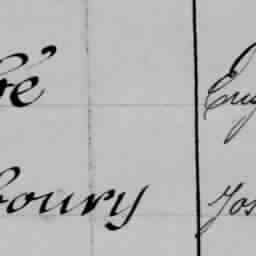 ré Eug
boury Jos